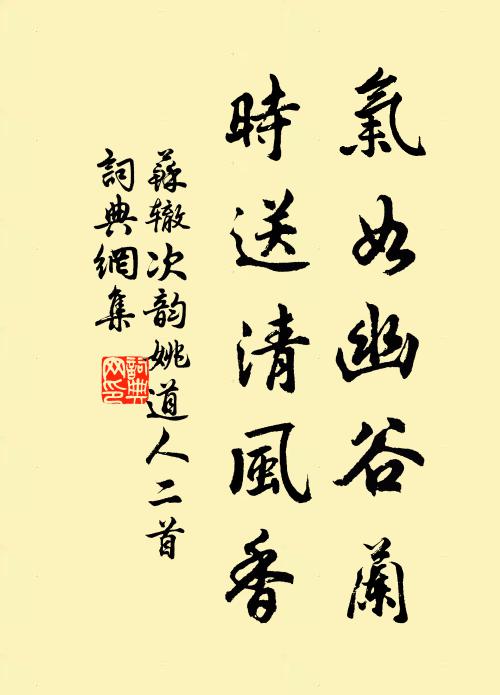 氣如幽谷蘭
時送清風香
蘇辙次韵姚道人二首
詞典網集
詞典網印